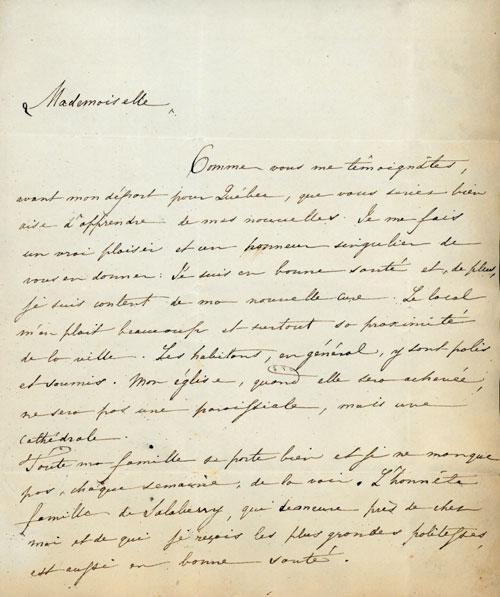 Mademoiselle,
Comme vous me témoignâtes,
avant mon départ pour Québec, que vous seriez bien
aise d'apprendre de mes nouvelles. Je me fais
un vrai plaisir et un honneur singulier de
vous en donner. Je suis en bonne santé et, de plus,
je suis content de ma nouvelle cure. Le local
m'en plait beaucoup et surtout sa proximité
de la ville. Les habitans, en général, y sont polis
et soumis. Mon église, quand elle sera achevée,
ne sera pas une paroissiale, mais une
cathédrale.
Toute ma famille se porte bien et je ne manque
pas, chaque semaine, de la voir. L'honnête
famille de Salaberry, qui demeure près de chez
moi et de qui je reçois les plus grandes politesses,
est aussi en bonne santé.